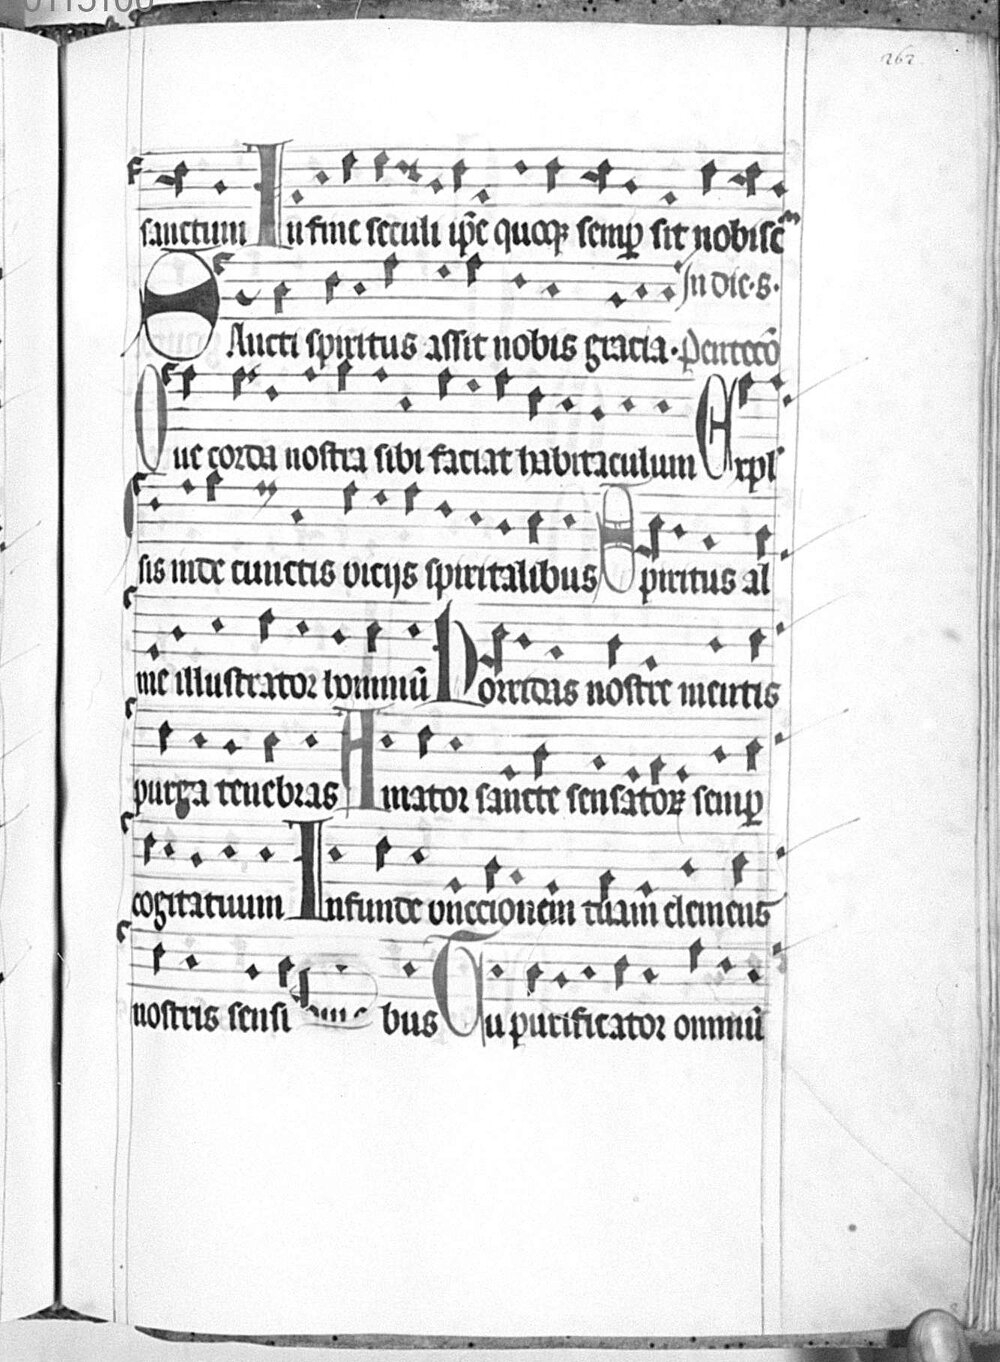 262
sanctum In fine seculi ip̄e quoqꝫ semꝑ sit nobiscū
In die·s·
Sancti spiritus assit nobis gracia· Pentecō
Que corda nostra sibi faciat habitaculum Expl
sis inde cunctis vicijs spiritalibus Spiritus al
me illustrator hominū Horridas nostre mentis
purga tenebras Amator sancte sensatoꝝ semꝑ
cogitatuum Infunde vnccionem tuam clemens
nostris sensi bus Tu purificator omniū